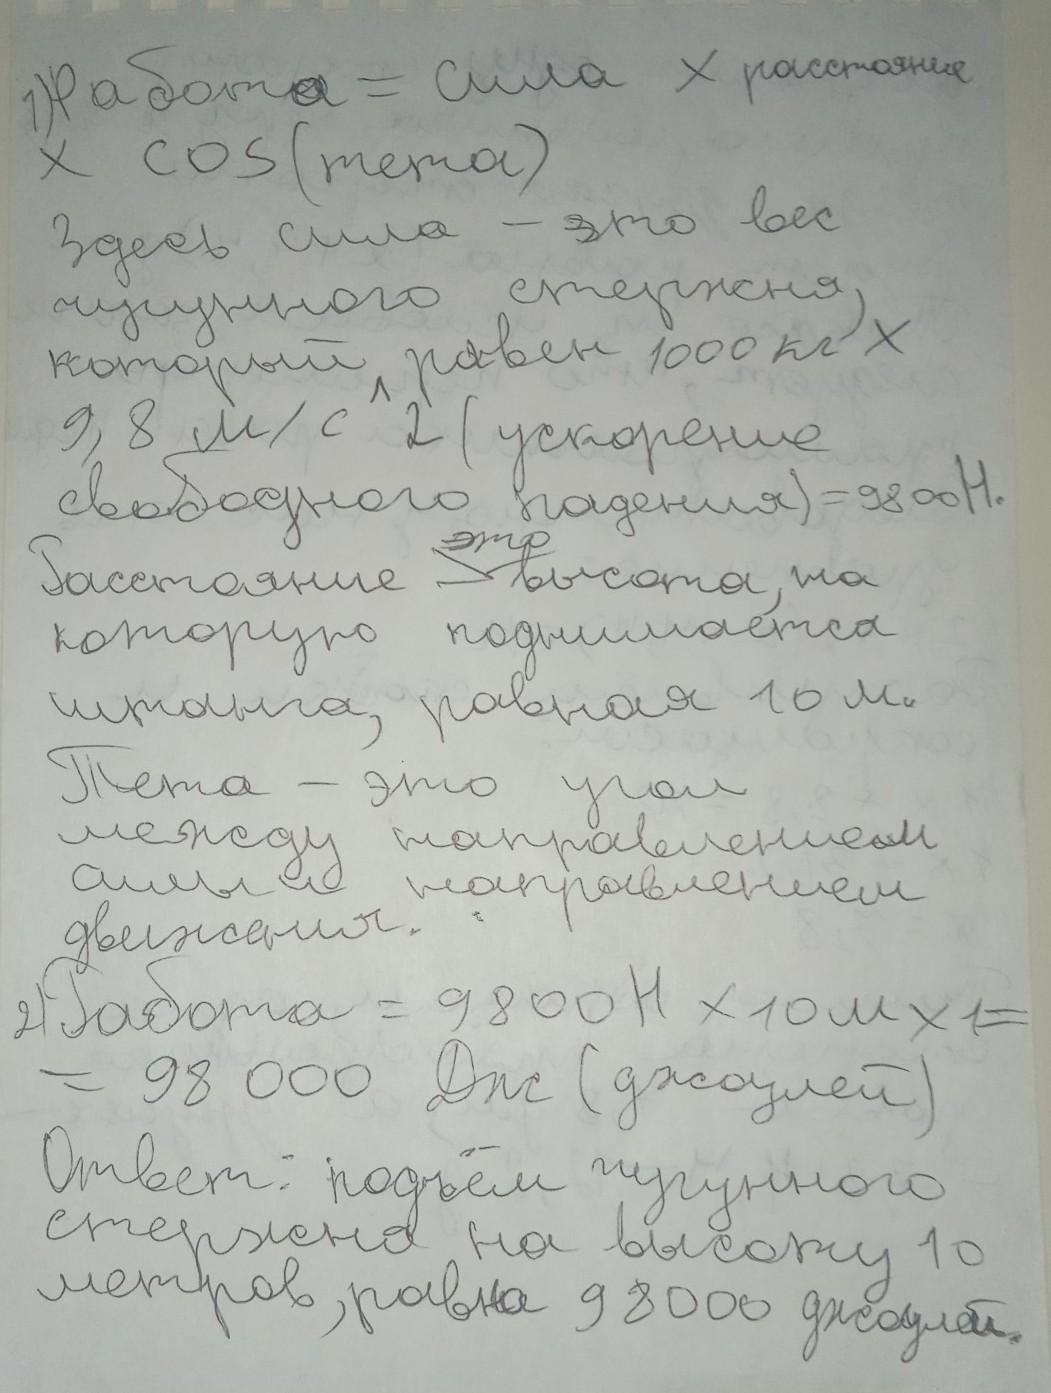 1) Работа = сила х расстояние
х cos(тета)
Здесь сила - это вес
чугунного стержня,
который равен 1000 кг х
9,8 м/с^2 (ускорение
свободного падения) = 9800 Н.
Расстояние - это высота, на
которую поднимается
штанга, равная 10 м.
Тета - это угол
между направлением
силы и направлением
движения.
2) Работа = 9800 Н х 10 м х 1 =
= 98 000 Дж (джоулей)
Ответ: подъём чугунного
стержня на высоту 10
метров, равна 98000 джоулей.